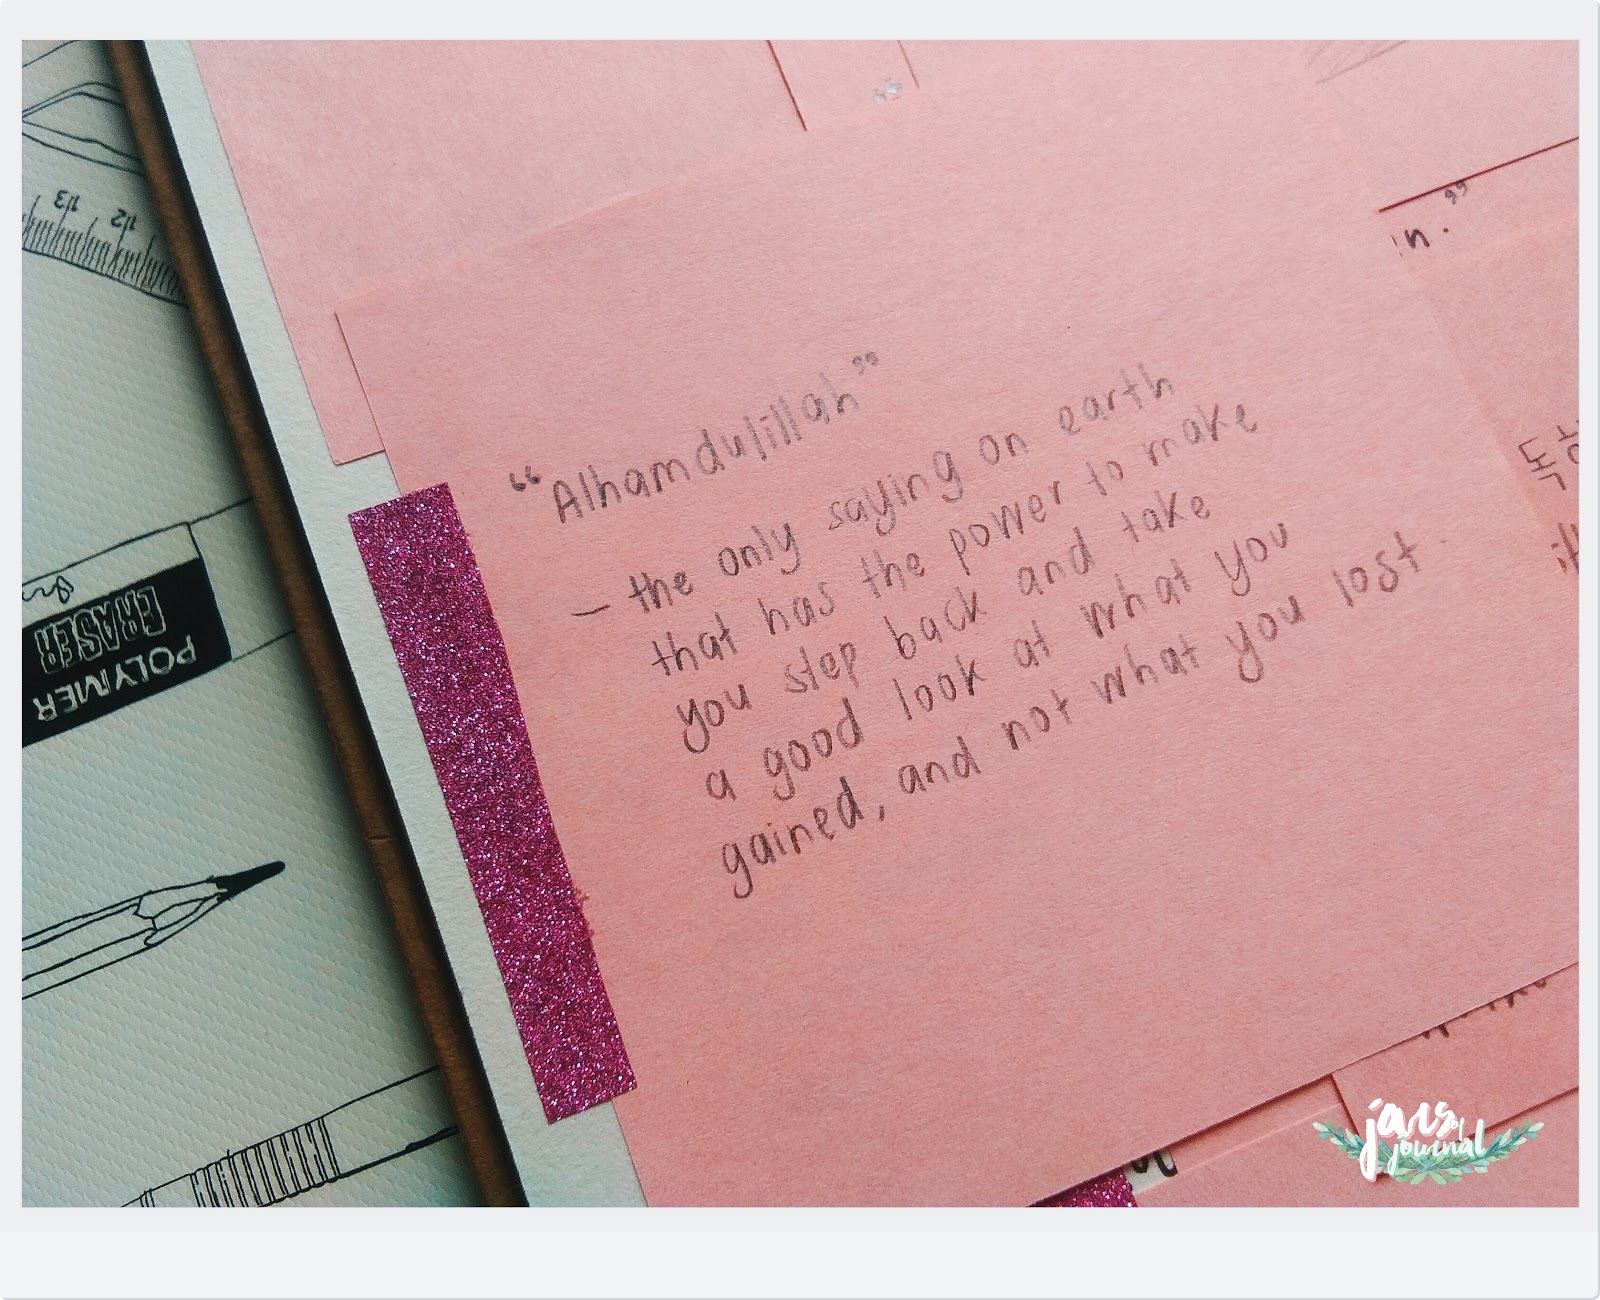 “Alhamdulillah”
– the only saying on earth
that has the power to make
you step back and take
a good look at what you
gained, and not what you lost.
n.”
“
13
12
POLYMER
ERASER
jars of
journal